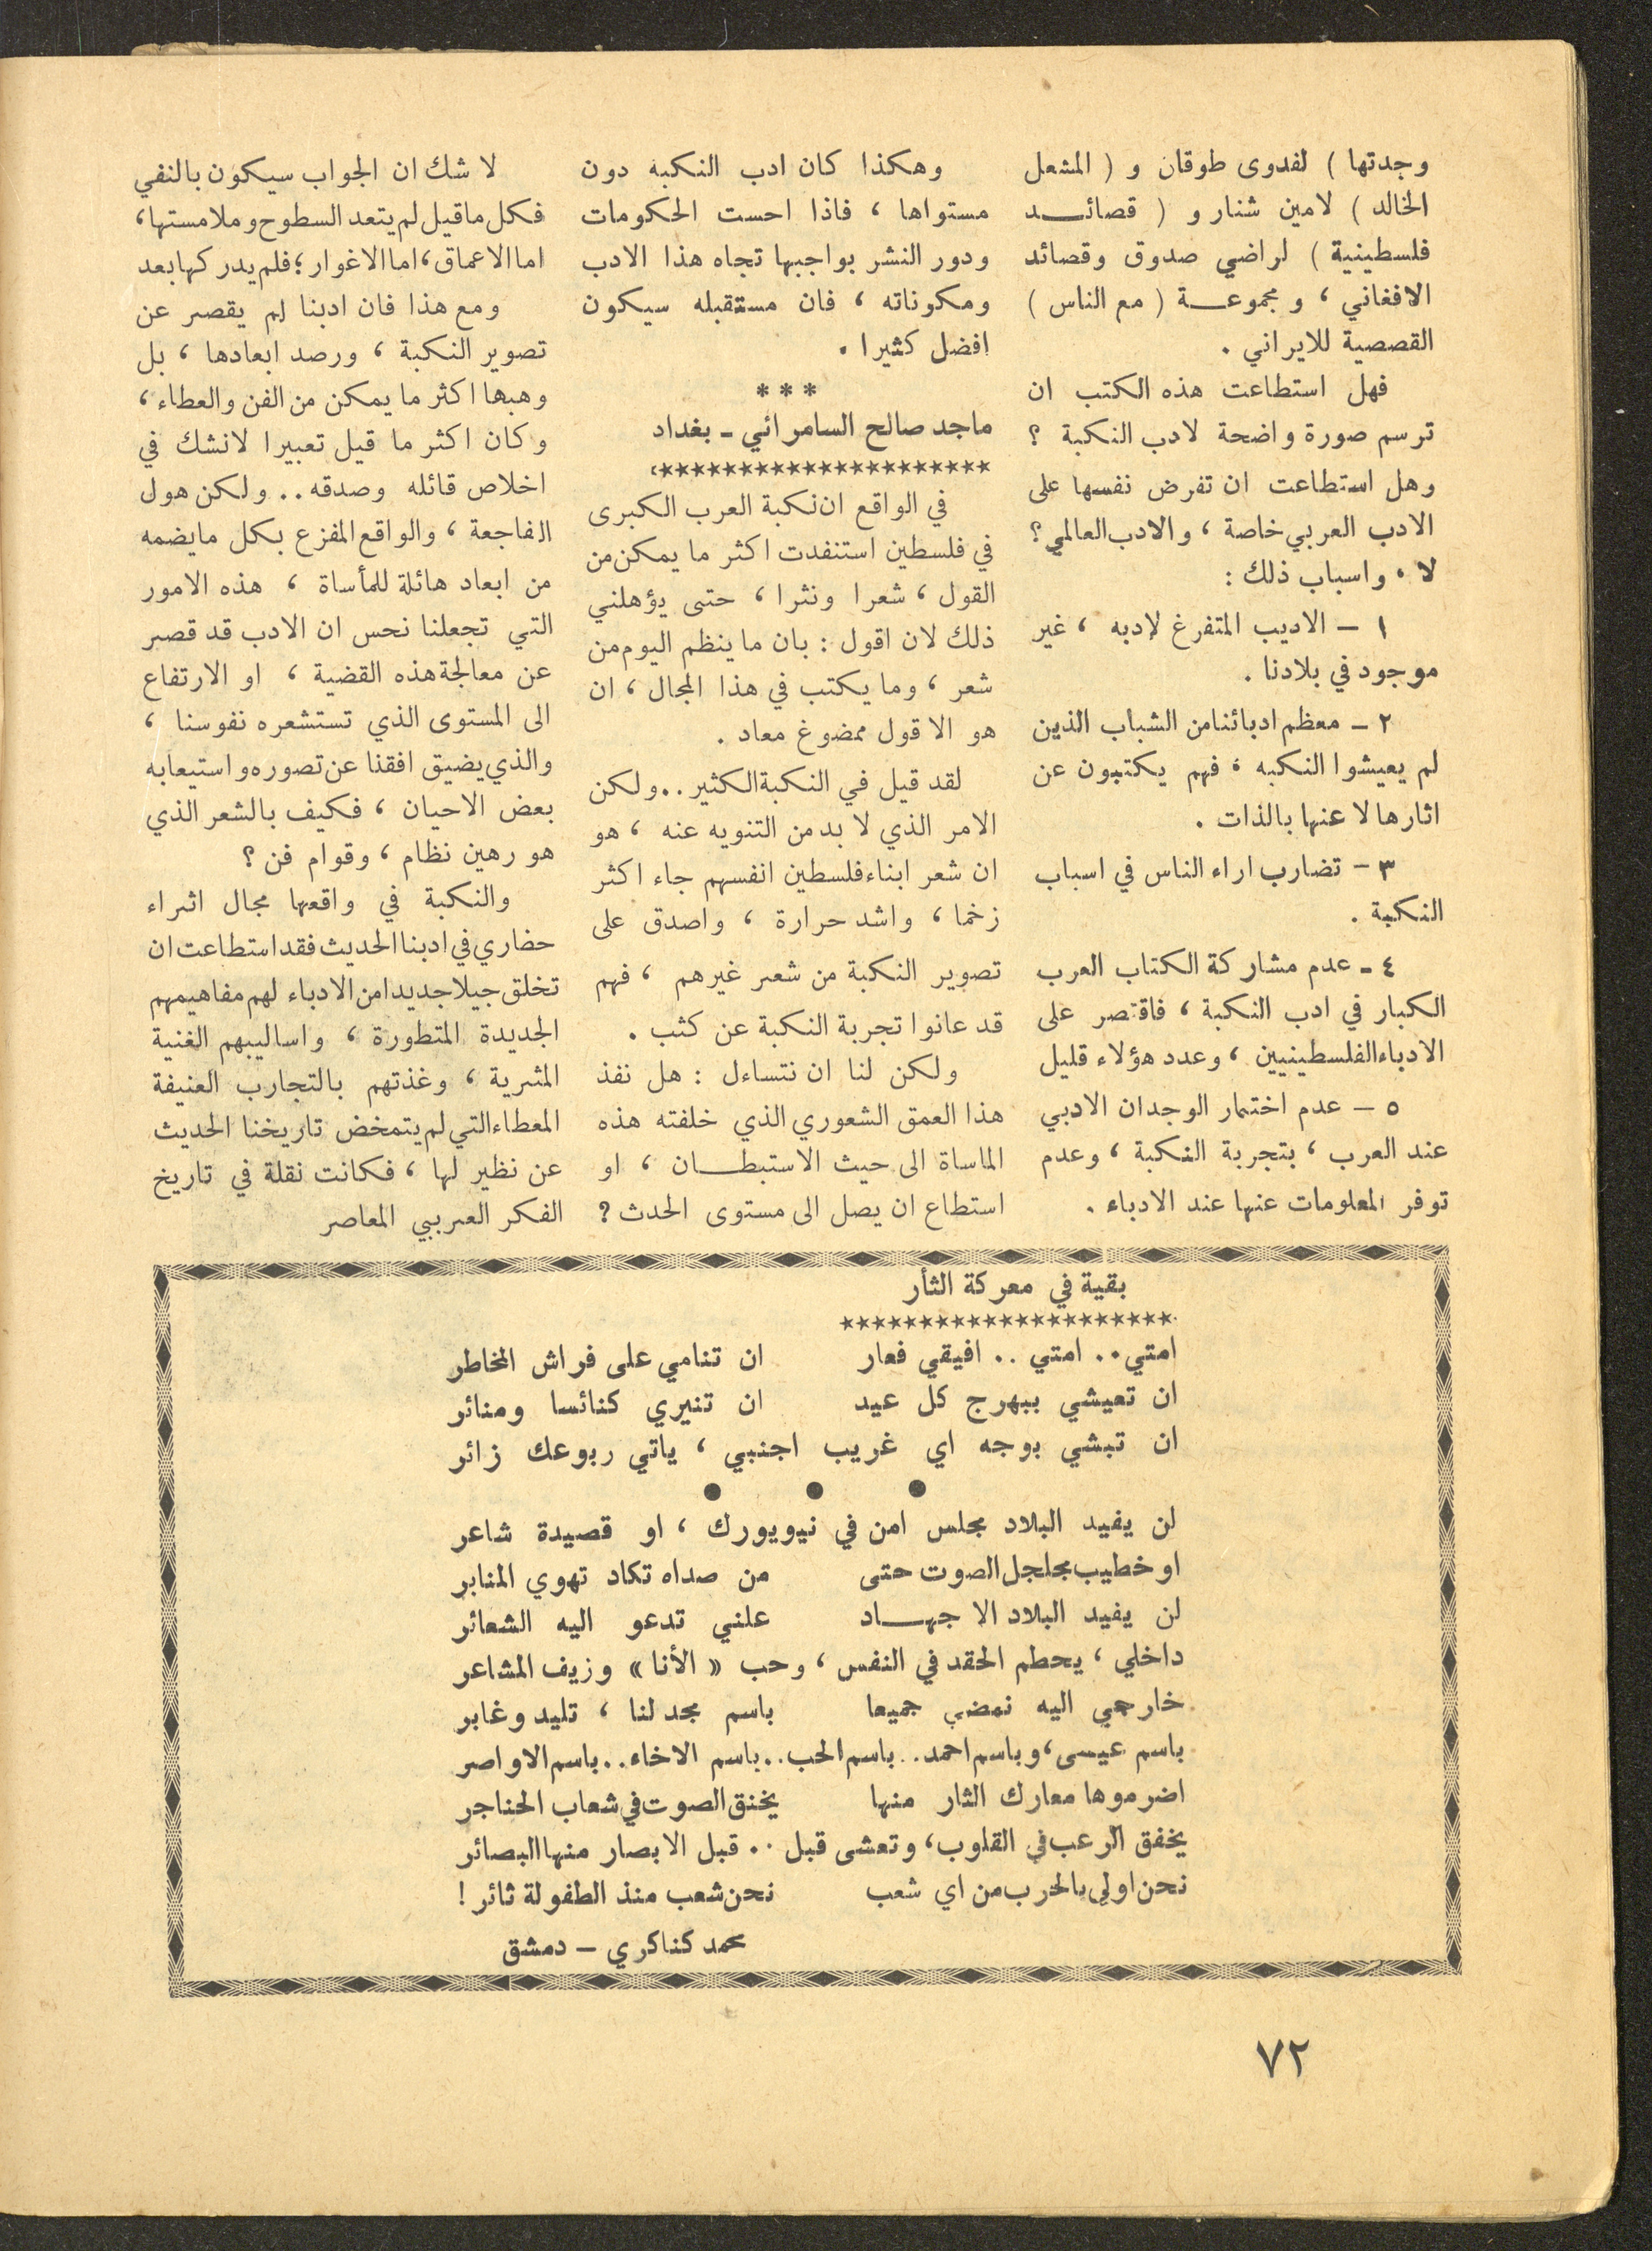 وجدتها ) لفدوى طوقان و ( المشعل
الخالد ) لامين شنار و ( قصائــد
فلسطينية ) لراضي صدوق وقصائد
الافغاني ، و مجموعــة ( مع الناس )
القصصية للايراني .
فهل استطاعت هذه الكتب ان
ترسم صورة واضحة لادب النكبة ؟
وهل استطاعت ان تفرض نفسها على
الادب العربي خاصة ، والادب العالمي ؟
لا ، واسباب ذلك :
١ – الاديب المتفرغ لإدبه ، غير
موجود في بلادنا .
٢ – معظم ادبائنا من الشباب الذين
لم يعيشوا النكبه ، فهم يكتبون عن
اثارها لا عنها بالذات .
٣ – تضارب اراء الناس في اسباب
النكبة .
٤ – عدم مشاركة الكتاب العرب
الكبار في ادب النكبة ، فاقتصر على
الادباء الفلسطينيين ، وعدد هؤلاء قليل
٥ – عدم اختمار الوجدان الادبي
عند العرب ، بتجربة النكبة ، وعدم
توفر المعلومات عنها عند الادباء .
وهكذا كان ادب النكبه دون
مستواها ، فاذا احست الحكومات
ودور النشر بواجبها تجاه هذا الادب
ومكوناته ، فان مستقبله سيكون
افضل كثيرا .
***
ماجد صالح السامرائي – بغداد
*********************
في الواقع ان نكبة العرب الكبرى
في فلسطين استنفدت اكثر ما يمكن من
القول ، شعرا ونثرا ، حتى يؤهلني
ذلك لان اقول : بان ما ينظم اليوم من
شعر ، وما يكتب في هذا المجال ، ان
هو الا قول ممضوغ معاد .
لقد قيل في النكبة الكثير .. ولكن
الامر الذي لا بد من التنويه عنه ، هو
ان شعر ابناء فلسطين انفسهم جاء اكثر
زخما ، واشد حرارة ، واصدق على
تصوير النكبة من شعر غيرهم ، فهم
قد عانوا تجربة النكبة عن كثب .
ولكن لنا ان نتساءل : هل نفذ
هذا العمق الشعوري الذي خلفته هذه
الماساة الى حيث الاستبطــان ، او
استطاع ان يصل الى مستوى الحدث ؟
لا شك ان الجواب سيكون بالنفي
فكل ما قيل لم يتعد السطوح وملامستها ،
اما الاعماق ، اما الاغوار ؛ فلم يدركها بعد
ومع هذا فان ادبنا لم يقصر عن
تصوير النكبة ، ورصد ابعادها ، بل
وهبها اكثر ما يمكن من الفن والعطاء ،
وكان اكثر ما قيل تعبيرا لانشك في
اخلاص قائله وصدقه .. ولكن هول
الفاجعة ، والواقع المفزع بكل ما يضمه
من ابعاد هائلة للمأساة ، هذه الامور
التي تجعلنا نحس ان الادب قد قصر
عن معالجة هذه القضية ، او الارتفاع
الى المستوى الذي تستشعره نفوسنا ،
والذي يضيق افقنا عن تصوره واستيعابه
بعض الاحيان ، فكيف بالشعر الذي
هو رهين نظام ، وقوام فن ؟
والنكبة في واقعها مجال اثراء
حضاري في ادبنا الحديث فقد استطاعت ان
تخلق جيلا جديدا من الادباء لهم مفاهيمهم
الجديدة المتطورة ، واساليبهم الغنية
المثرية ، وغذتهم بالتجارب العنيفة
المعطاء التي لم يتمخض تاريخنا الحديث
عن نظير لها ، فكانت نقلة في تاريخ
الفكر العربي المعاصر
بقية في معركة الثأر
*********************
امتي .. امتي .. افيقي فعار ان تنامي على فراش المخاطر
ان تعيشي ببهرج كل عيد ان تنيري كنائسا ومنائر
ان تبشي بوجه اي غريب اجنبي ، ياتي ربوعك زائر
● ● ●
لن يفيد البلاد مجلس امن في نيويورك ، او قصيدة شاعر
او خطيب مجلجل الصوت حتى من صداه تكاد تهوي المنابر
لن يفيد البلاد الا جهــاد علني تدعو اليه الشعائر
داخلي ، يحطم الحقد في النفس ، وحب « الأنا » وزيف المشاعر
خارجي اليه نمضي جميعا باسم مجد لنا ، تليد وغابر
باسم عيسى ، وباسم احمد .. باسم الحب .. باسم الاخاء .. باسم الاواصر
اضرموها معارك الثار منها يخنق الصوت في شعاب الحناجر
يخفق الرعب في القلوب ، وتعشى قبل .. قبل الابصار منها البصائر
نحن اولى بالحرب من اي شعب نحن شعب منذ الطفولة ثائر !
محمد كناكري – دمشق
٧٢